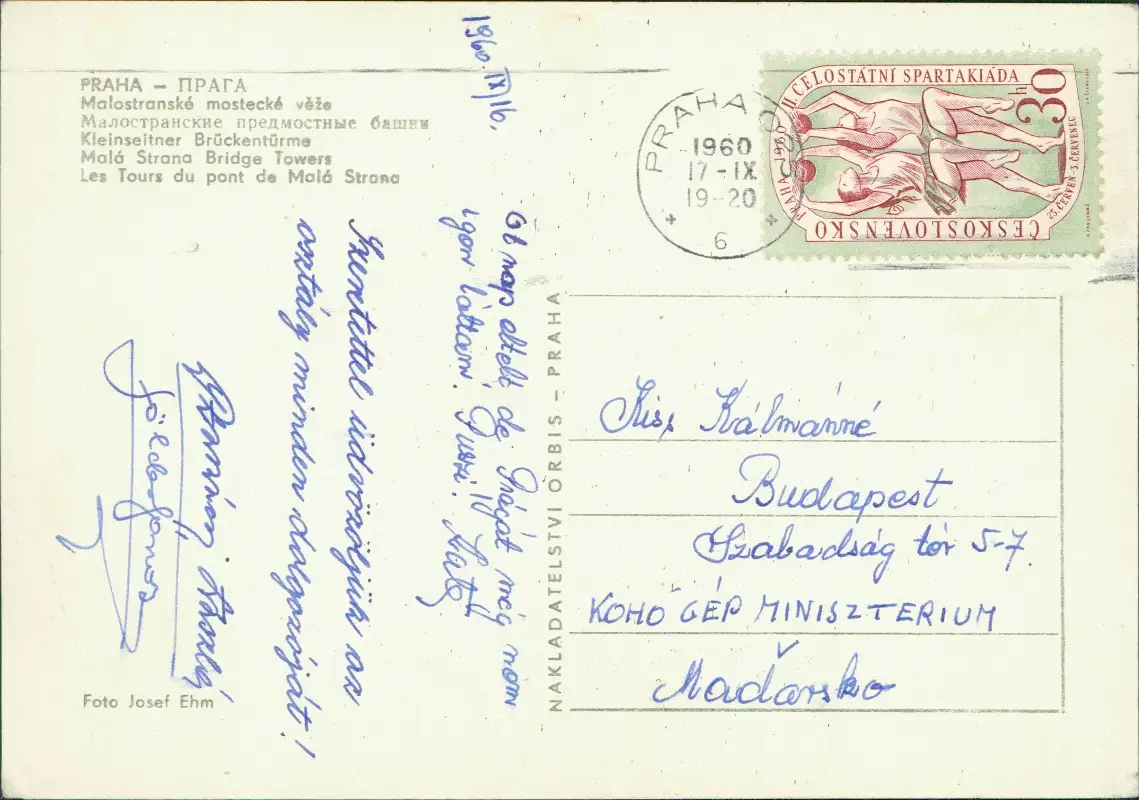 PRAHA – ПРАГА
Malostranské mostecké věže
Малостранские предмостные башни
Kleinseitner Brückentürme
Malá Strana Bridge Towers
Les Tours du pont de Malá Strana
1960. IX/16.
Öt nap eltelt de Prágát még nem
igen láttam. Puszi.
Szeretettel üdvözöljük az
osztály minden dolgozóját!
László
Foto Josef Ehm
NAKLADATELSTVÍ ORBIS – PRAHA
PRAHA
1960
17-IX
19-20
6
II. CELOSTÁTNÍ SPARTAKIÁDA
PRAHA 1960
30 h
23. ČERVEN - 3. ČERVENEC
ČESKOSLOVENSKO
Kiss Kálmánné
Budapest
Szabadság tér 5-7.
KOHÓ GÉP MINISZTERIUM
Maďarsko